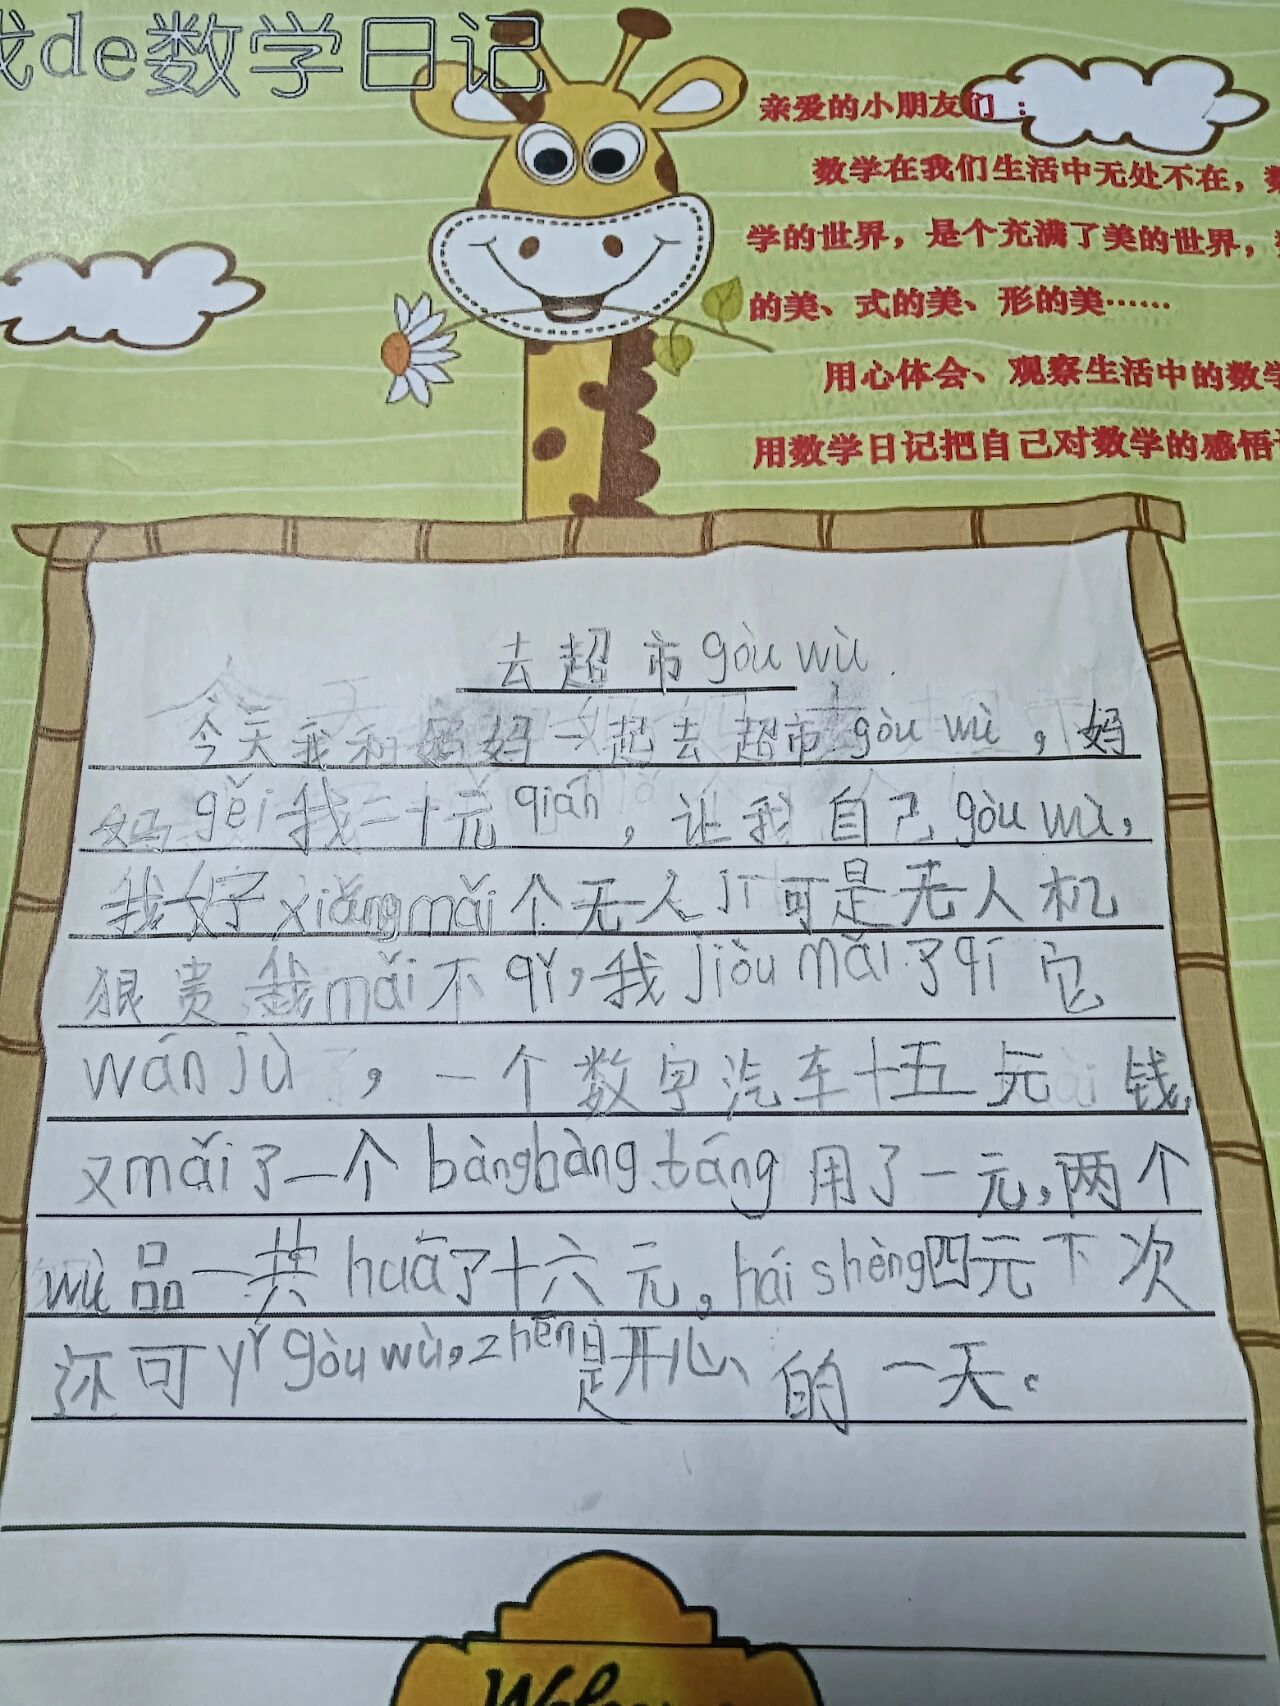 我de数学日记
亲爱的小朋友们：
数学在我们生活中无处不在，数
学的世界，是个充满了美的世界，
的美、式的美、形的美……
用心体会、观察生活中的数学
用数学日记把自己对数学的感悟
去超市gòu wù
今天我和妈妈一起去超市gòu wù，妈
妈gěi我二十元qián，让我自己gòu wù，
我好xiǎng mǎi个无人jī可是无人机
很贵，我mǎi不qǐ，我jiòu mǎi了qí它
wán jù，一个数字汽车十五元钱，
又mǎi了一个bàngbàng táng用了一元，两个
wù品一共huā了十六元，hái shèng四元下次
还可yǐ gòu wù，zhēn是开心的一天。